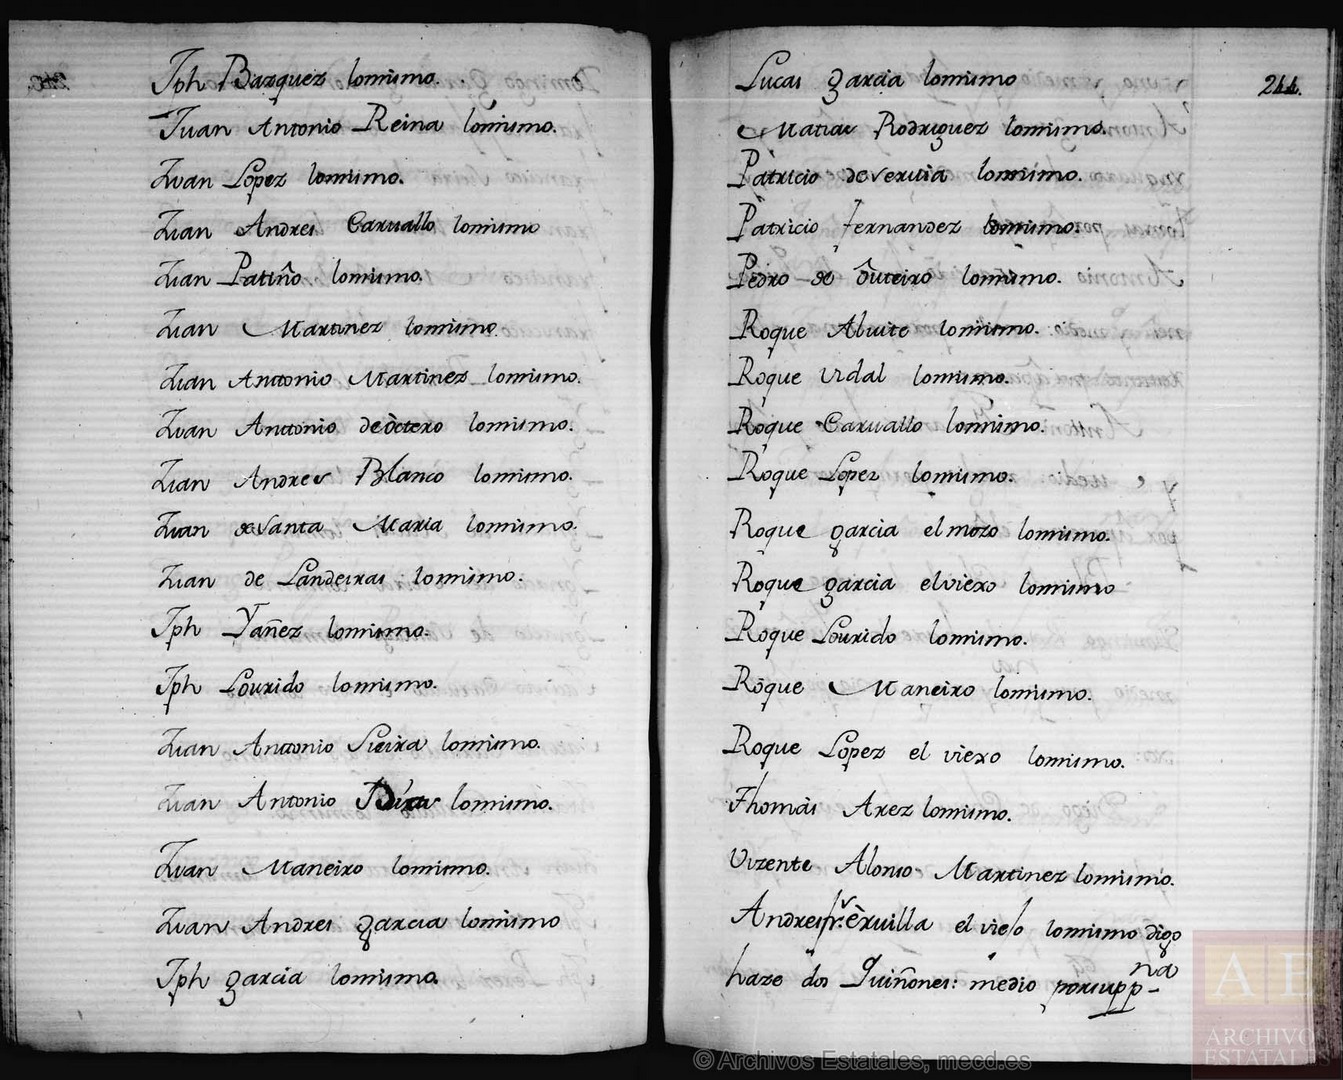 Jph Bazquez lomismo.
Juan Antonio Reina lomismo.
Juan Lopez lomismo.
Juan Andres Caruallo lomismo
Juan Patiño lomismo.
Juan Martinez lomismo.
Juan Antonio Martinez lomismo.
Juan Antonio de òtero lomismo.
Juan Andres Blanco lomismo.
Juan de Santa Maria lomismo.
Juan de Landeiras lomismo.
Jph Yañez lomismo.
Jph Lourido lomismo.
Juan Antonio Sieira lomismo.
Juan Antonio lomismo.
Juan Maneiro lomismo.
Juan Andres garcia lomismo
Jph garcia lomismo.
244.
Lucas garcia lomismo
Matias Rodriguez lomismo.
Patricio de lomismo.
Patricio Fernandez lomismo.
Pedro de Outeiro lomismo.
Roque Abuite lomismo.
Roque vidal lomismo.
Roque Caruallo lomismo.
Roque Lopez lomismo.
Roque garcia el mozo lomismo.
Roque garcia el viexo lomismo
Roque Lourido lomismo.
Roque Maneiro lomismo.
Roque Lopez el viexo lomismo.
Thomas Arez lomismo.
Vizente Alonso Martinez lomismo.
Andres el viejo lomismo digo
haze dos Quiñones: medio por su ppna
© Archivos Estatales, mecd.es
AE
ARCHIVOS
ESTATALES